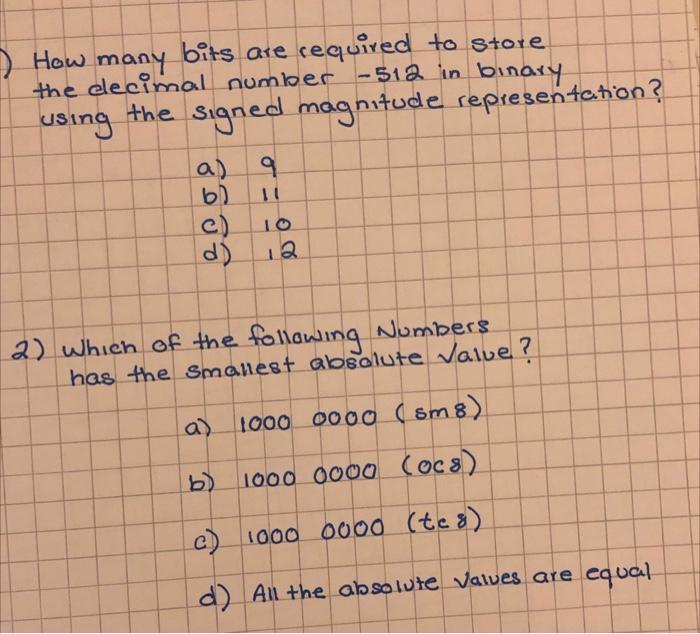 ) How many bits are required to store
the decimal number -512 in binary
using the signed magnitude representation?
a) 9
b) 11
c) 10
d) 12
2) Which of the following Numbers
has the smallest absolute Value?
a) 1000 0000 (sm8)
b) 1000 0000 (oc8)
c) 1000 0000 (tc8)
d) All the absolute values are equal